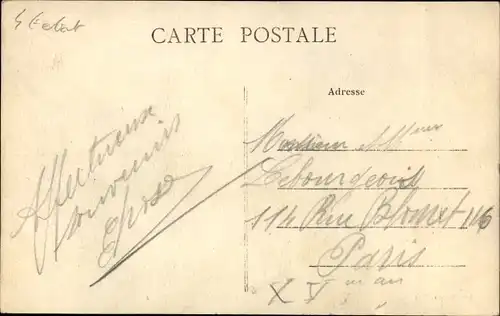 CARTE POSTALE
Adresse
Affectueux
souvenirs
Monsieur et Mme
Lebourgeois
114 Rue Blomet 116
Paris
XV